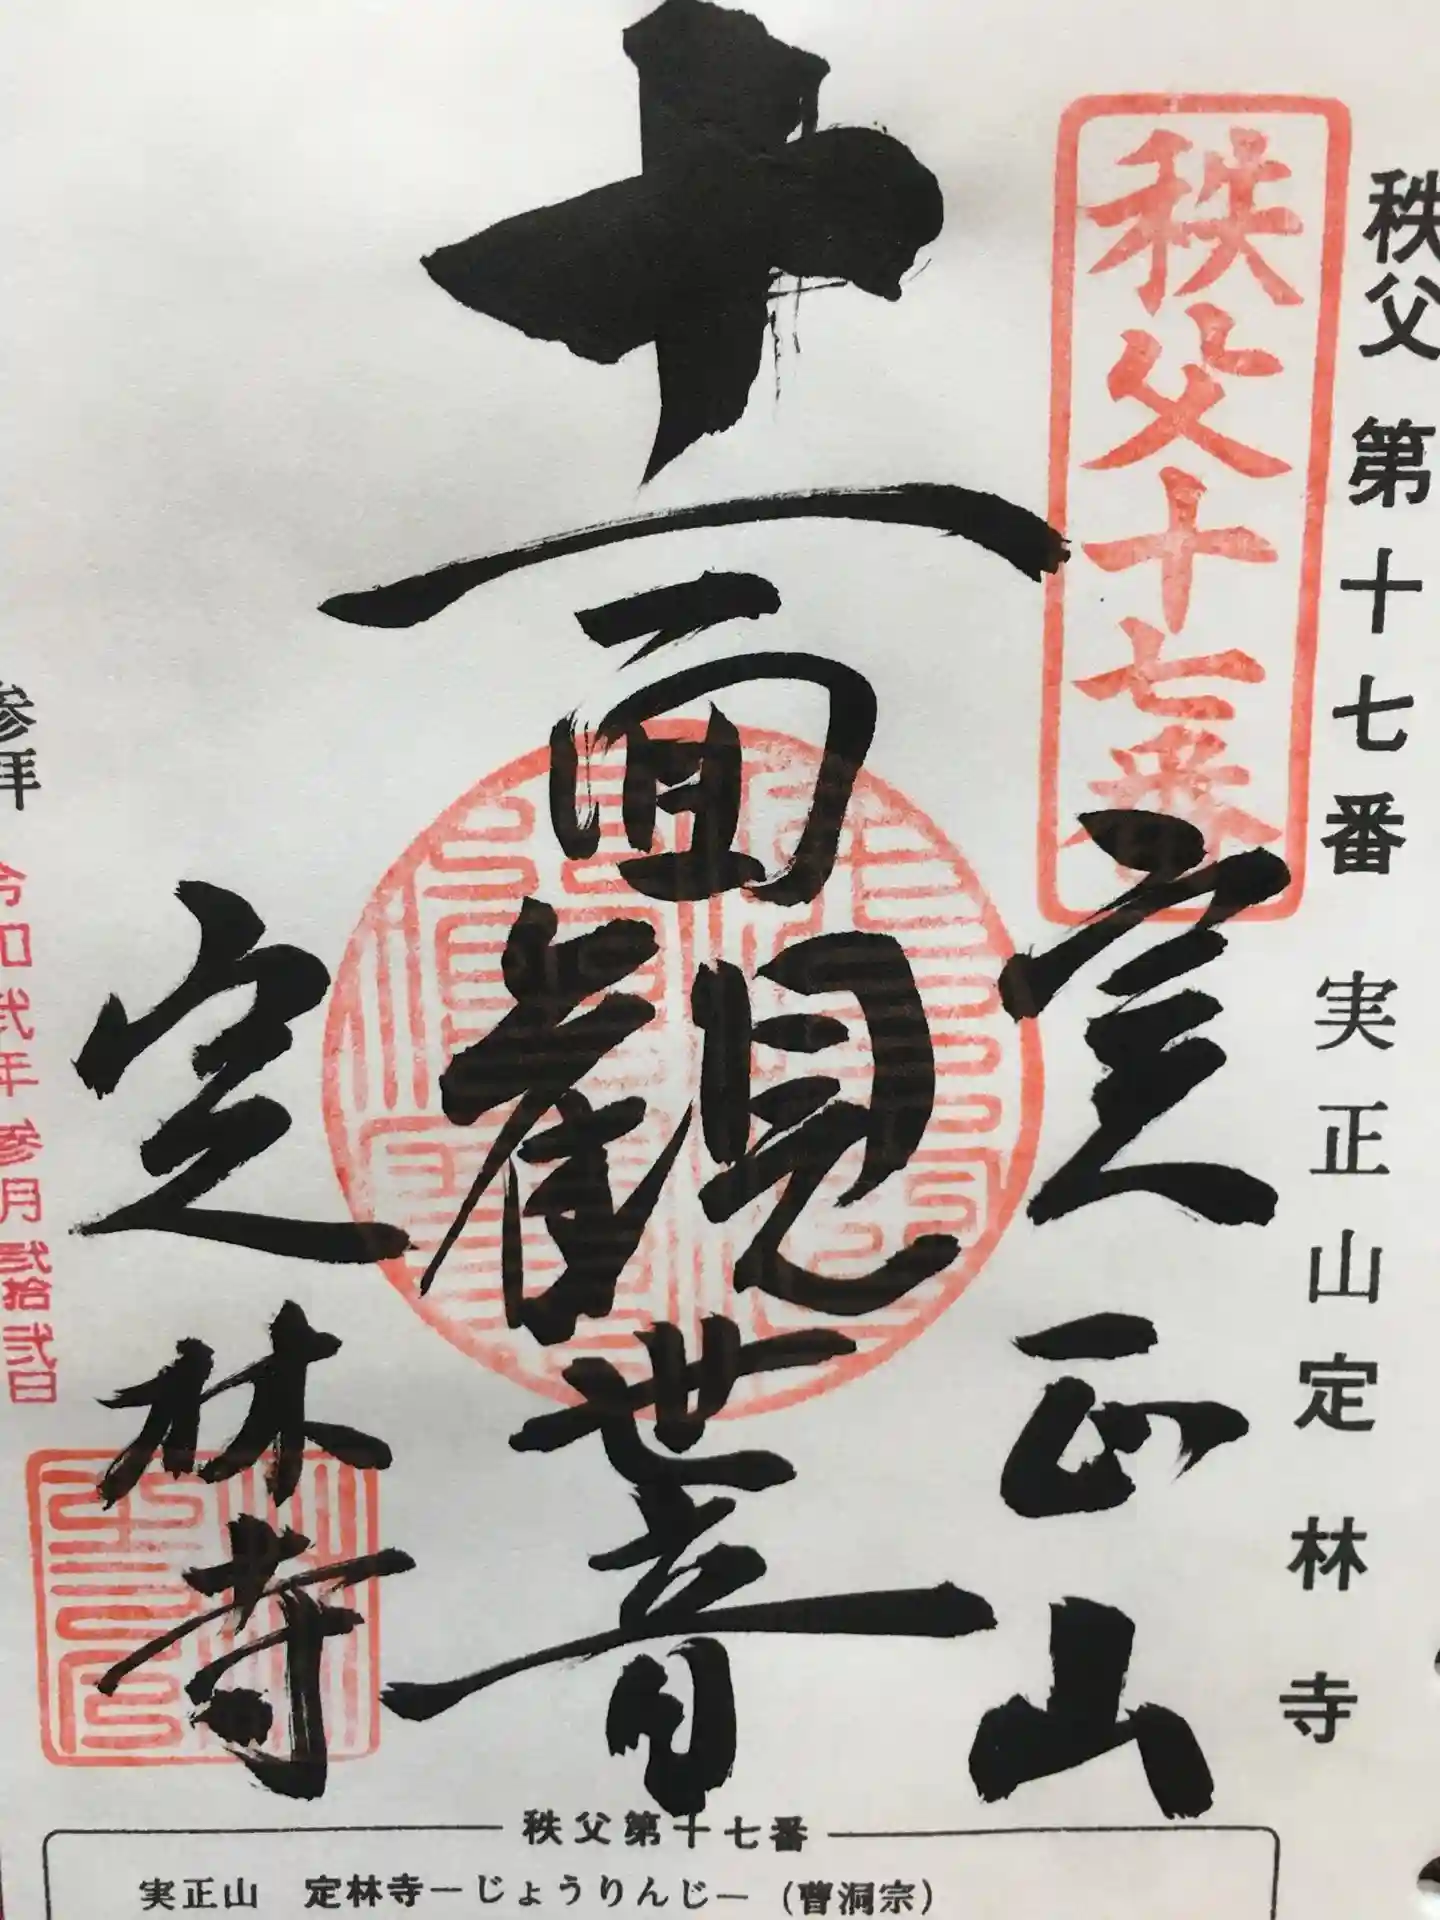 秩父第十七番 実正山定林寺
秩父十七番
実正山
十一面観世音
定林寺
参拝 令和弐年参月弐拾弐日
秩父第十七番
実正山 定林寺ーじょうりんじー (曹洞宗)